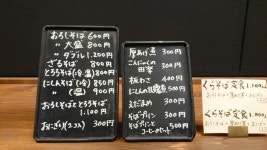 おろしそば 600円
〃 大盛 800円
〃 ダブル 1,200円
ざるそば 800円
とろろそば(冷・温) 800円
にしんそば(冷) 850円
〃 (温) 900円
おろしそばととろろそば
1,100円
おにぎり(2コ入) 300円
厚あげ煮 300円
こんにゃくの
田楽 300円
板わさ 400円
にしんの 500円
えだまめ 300円
そばプリン 300円
そばプリンと
コーヒーのセット 500円
くらそば定食
くらそば定食